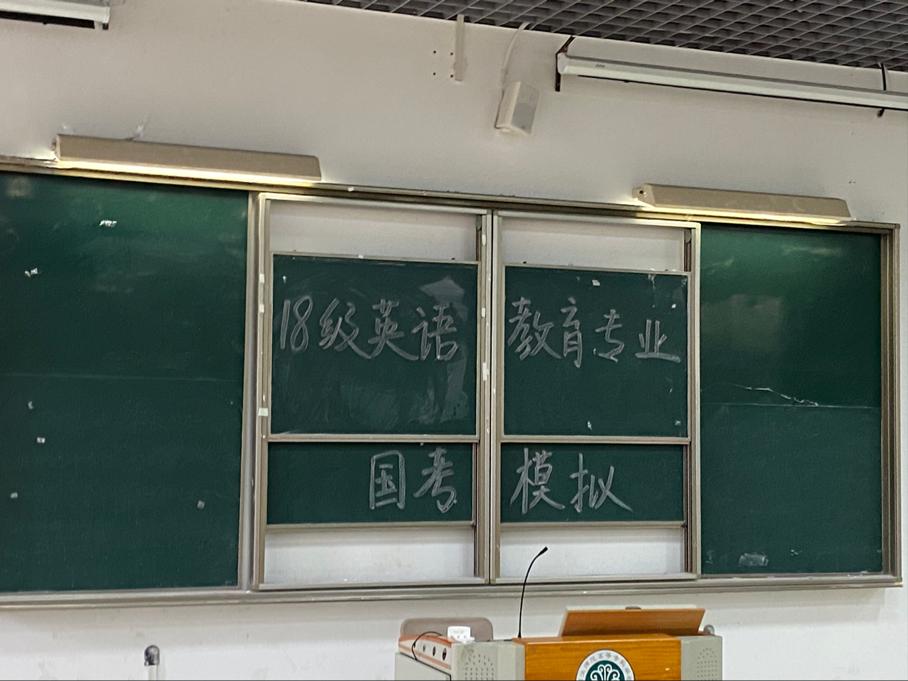 18级英语教育专业
国考模拟